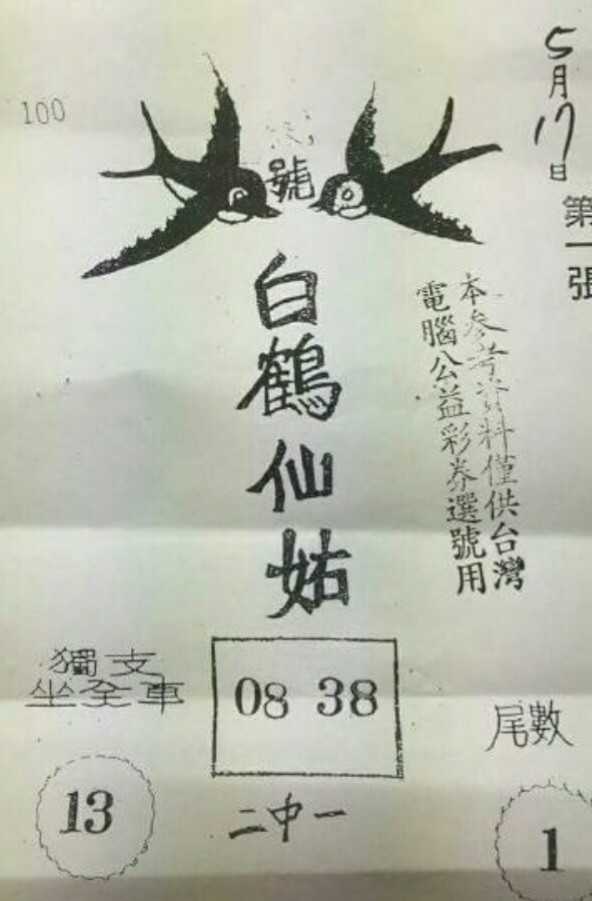 100
5月17日
第一張
號
白鶴仙姑
本參考資料僅供台灣
電腦公益彩券選號用
獨支
坐全車
13
08 38
二中一
尾數
1